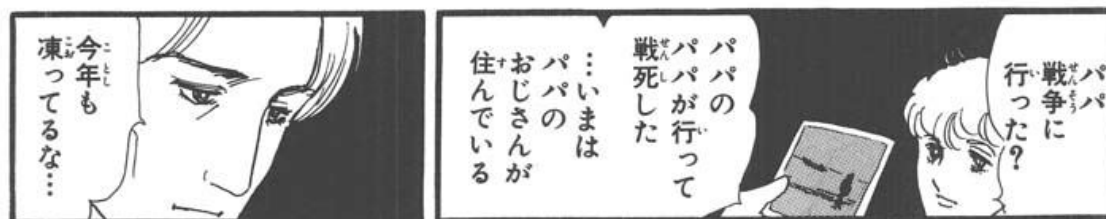 パパ
戦争に
行った?
パパの
パパが行って
戦死した
…いまは
パパの
おじさんが
住んでいる
今年も
凍ってるな…